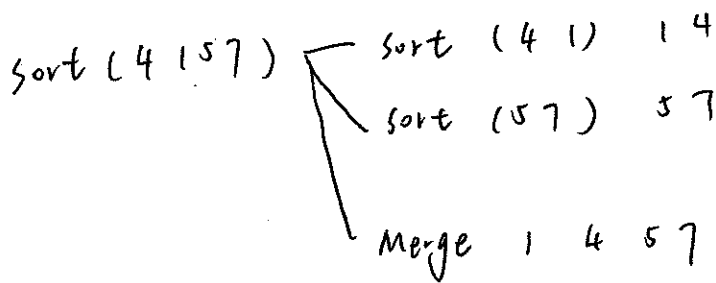 sort (4 1 5 7)
sort (4 1) 1 4
sort (5 7) 5 7
Merge 1 4 5 7